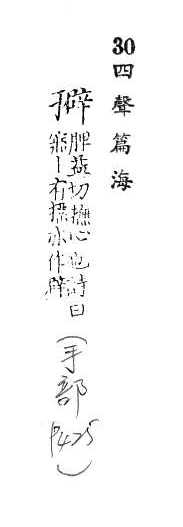 30 四聲篇海
擗
脾益切撫心也詩曰
丨有摽亦作
(手部 P425)